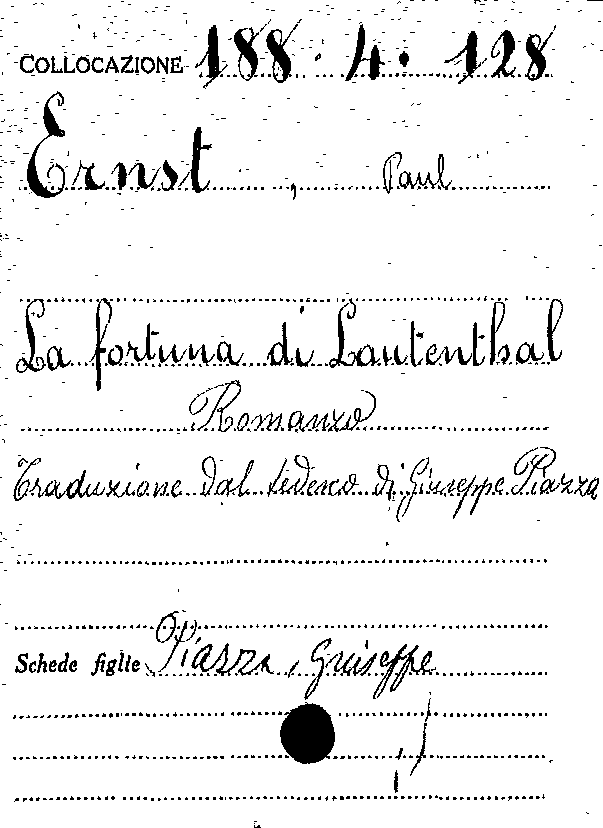 COLLOCAZIONE 188. 4. 128
Ernst, Paul
La fortuna di Lautenthal
Romanzo
Traduzione dal tedesco di Giuseppe Piazza
Schede figlie Piazza, Giuseppe